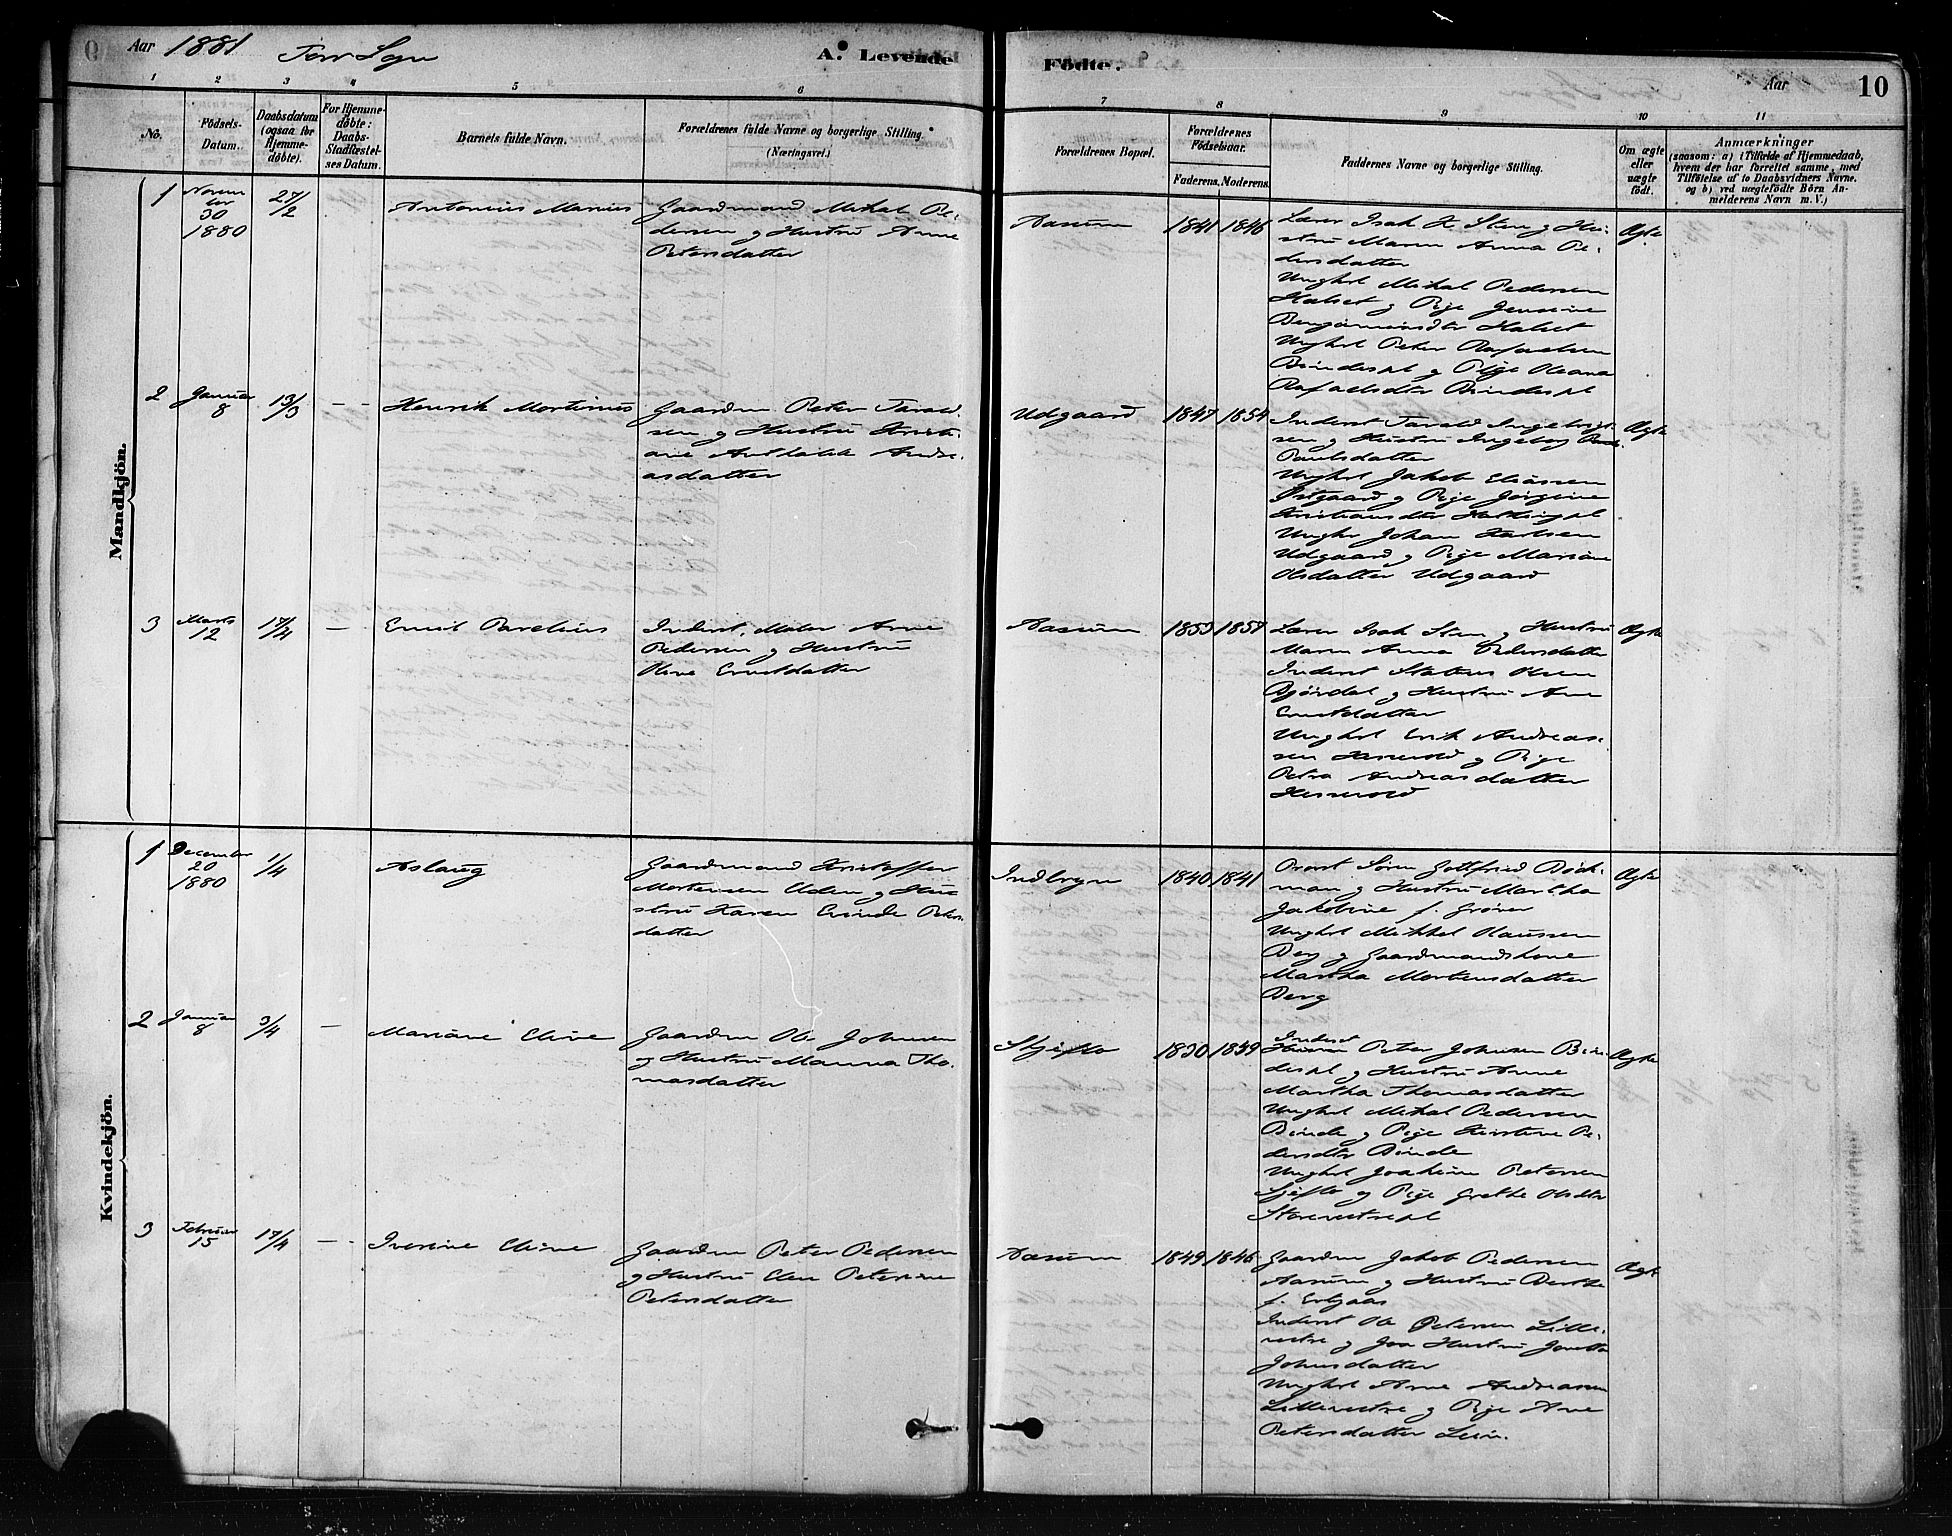 Aar 1881
A. Levende Födte.
Aar 10
1 2 3 4 5 6 7 8 9 10 11
No.
Födsels-Datum.
Daabsdatum (ogsaa for Hjemme-döbte).
For Hjemme-döbte: Daabs-Stadfæstel-ses Datum.
Barnets fulde Navn.
Forældrenes fulde Navne og borgerlige Stilling.
(Næringsvei.)
Forældrenes Bopæl.
Forældrenes Födselsaar.
Faderens. Moderens.
Faddernes Navne og borgerlige Stilling.
Om ægte eller uægte födt.
Anmærkninger
(saasom: a) i Tilfælde af Hjemmedaab,
hvem der har forrettet samme, med
Tilföielse af to Daabsvidners Navne.
og b) ved uægtefödte Börn An-
melderens Navn m. V.)
Mandkjön.
1 Novem
ber
30
1880
27/2
Antonius Marius
Gaardmand Mikal Pe-
dersen og Hustru Anne
Petersdatter
Aasum
1841 1846
Lærer Isak K. Sten og Hu-
stru Maren Anna Pe-
dersdatter
Ungkrl Mikal Pedersen
Halset og Pige Jensine
Benjaminsdtr Halset
Ungkrl Peter Rafaelsen
Bindespl og Pige Oleana
Rafaelsdtr Bindespl
Ægte
2 Januar
8
13/3
—
Henrik Mortinus
Gaardm Peter Tarald-
sen og Hustru Kristi-
ane Andre-
asdatter
Udgaard
1847 1854
Inderst Tarald Ingebrigt-
sen og Hustru Ingeborg
Paulsdatter
Ungkrl Jakob Eliassen
Østgaard og Pige Jørgine
Kristiansdtr
Ungkr Johan Karlsen
Udgaard og Pige Mariane
Olsdatter Udgaard
Ægte
3 Marts
12
17/4
—
Emil Parelius
Inderst, Maler Arne
Pedersen og Hustru
Oline Ernstdatter
Aasum
1853 1857
Lærer Isak Sten og Hustru
Maren Anna Pedersdatter
Inderst Olsen
Bjørdal og Hustru Ane
Ernstdatter
Ungkrl Erik Andreas-
sen og Pige
Petra Andreasdatter
Ægte
Kvindekjön.
1 December
20
1880
1/4
Aslaug
Gaardmand Kristoffer
Mortensen Uden og Hu-
stru Karen Peters-
datter
Indbryn
1840 1841
Provst Søren Gottfried Bøch-
man og Hustru Martha
Jakobine f. Grøner
Ungkrl Mikkel Claussen
Berg og Gaardmandskone
Martha Mortensdatter
Berg
Ægte
2 Januar
8
3/4
—
Mariane Eline
Gaardm Ole Johnsen
og Hustru Manna Tho-
masdatter
Skjefte
1830 1839
Inderst
Peter Johnsen Bin-
despl og Hustru Anne
Martha Thomasdatter
Ungkrl Mikal Pedersen
Binde og Pige Kirstine Pe-
dersdtr Binde
Ungkrl Joakim Petersen
Skjefte og Pige Grethe Olsdtr
Storvestrepl
Ægte
3 Februar
15
17/4
—
Iverine Eline
Gaardm Peter Pedersen
og Hustru Elen Peterine
Petersdatter
Aasum
1849 1846
Gaardm Jakob Pedersen
Aasum og Hustru Berthe
f.
Inderst Ole Petersen Lille-
vestre og Hustru Janetta
Johnsdatter
Ungkrl Arne Andreassen
Lillevestre og Pige Ane
Petersdatter Lein.
Ægt